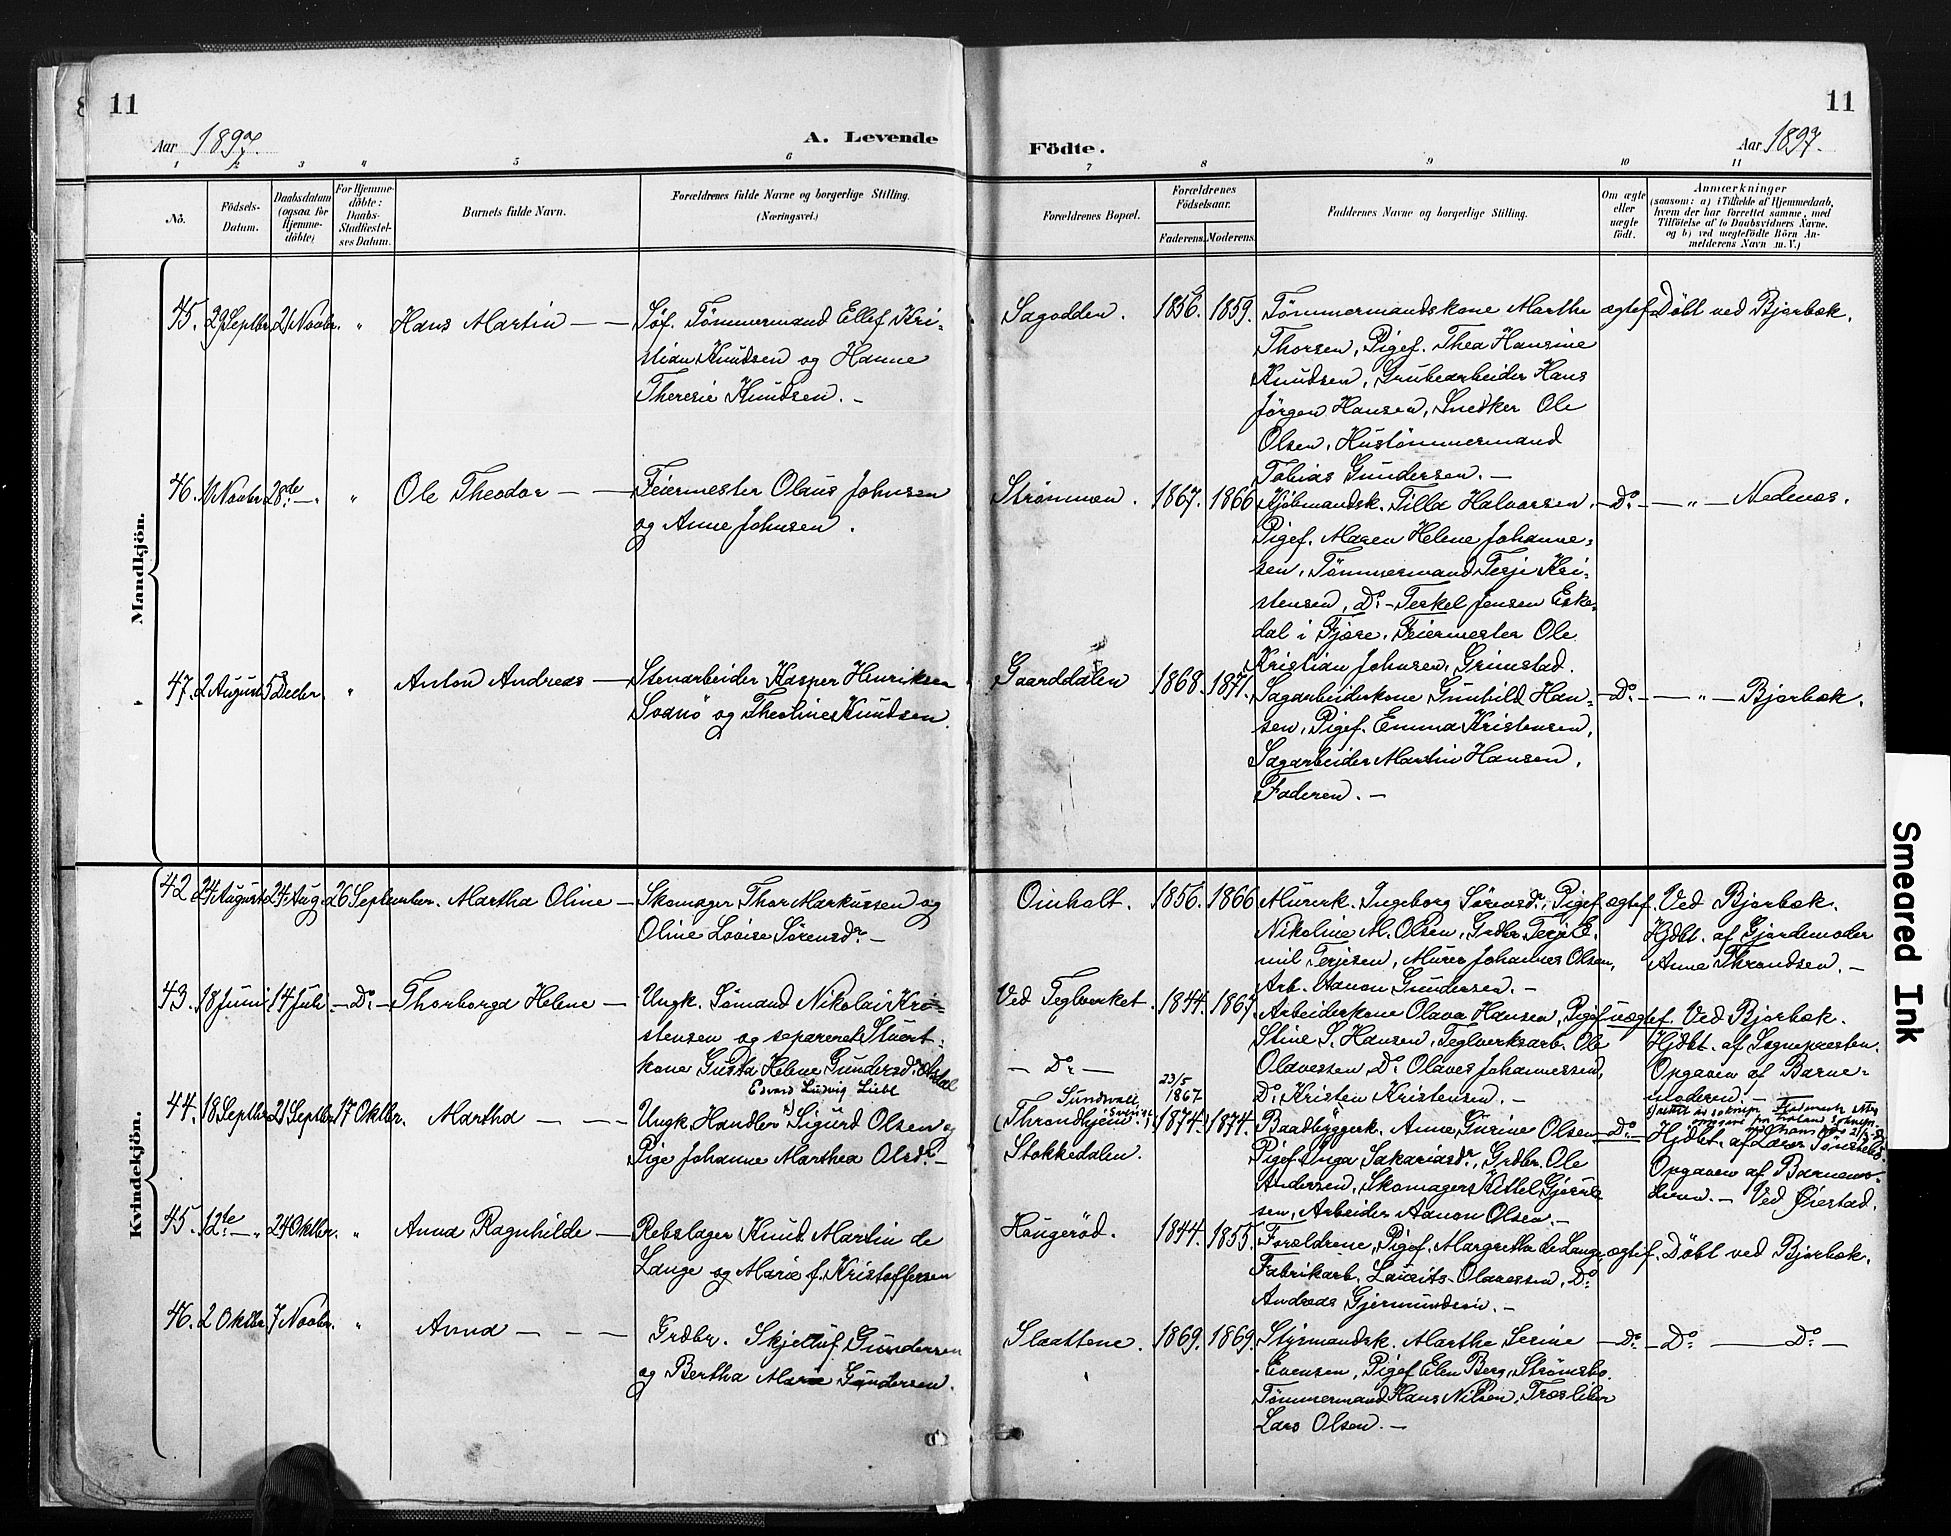 8 11
11
Aar 1897.
A. Levende
Födte.
Aar 1897.
1 2 3 " 5 6 7 8 9 10 11
No.
Födsels-
Datum.
Daabsdatum
(ogsaa for
Hjemme-
döbte)
For Hjemme-
döbte:
Daabs-
Stadfæstel-
ses Datum.
Barnets fulde Navn.
Forældrenes fulde Navne og borgerlige Stilling.
(Næringsvei.)
Forældrenes Bopæl.
Forældrenes
Födselsaar.
Faderens. Moderens.
Faddernes Navne og borgerlige Stilling.
Om ægte
eller
uægte
födt.
Anmærkninger
(saasom: a) i Tilfælde af Hjemmedaab,
hvem der har forrettet samme, med
Tilföielse af to Daabsvidners Navne.
og b) ved uægtefödte Börn An-
melderens Navn m. V.)
Mandkjön.
45. 29 Septbr. 21 Novbr. " Hans Martin — —
Søf. Tømmermand Ellef Kri-
stian Knudsen og Hanne
Theresie Knudsen. —
Sagodden. 1856. 1859.
Tømmermandskone Marthe
Thorsen, Pigef. Thea Hansine
Knudsen, Grubearbeider Hans
Jörgen Hansen, Snedker Ole
Olsen, Hustömmermand
Tobias Gundersen. —
ægtef. Döbt ved Bjorbæk.
46. Novbr. 28de — " " Ole Theodor — —
Feiermester Olaus Johnsen
og Anne Johnsen.
Strømmen. 1867. 1866
Kjöbmandsk. Tilla Halvorsen,
Pigef. Maren Helene Johanne-
sen, Tømmermand Terje Kri-
stensen, Do — Terkel Jensen Eske-
dal i Fjære, Feiermester Ole
Kristian Johnsen, Grimstad.
— Do — — " — Nedenæs.
47. 2 August 5 Decbr. " Anton Andreas —
Stenarbeider Kasper Henriksen
Sodnö og Theoline Knudsen.
Gaarddalen 1868. 1871.
Sagarbeiderkone Gunhild Han-
sen, Pigef. Emma Kristensen,
Sagarbeider Martin Hansen,
Faderen. —
— Do — — " — Bjorbæk.
Kvindekjön.
42. 24 August 24 Aug. 26 September. Martha Oline —
Skomager Thor Markussen og
Oline Lovise Sörensdr. —
Oinholt. 1856. 1866
Murerk. Ingeborg Sörensdr., Pigef.
Nikoline M. Olsen, Grdbr. Terje E-
mil Terjesen, Murer Johannes Olsen,
Arb. Aanon Gundersen. —
ægtef. Ved Bjorbæk.
Hjdbt. af Gjordemoder
Anne Throndsen. —
43. 18 Juni 14 Juli — Do — Thorborgd Helene —
Ungk. Sömand Nikolai Kri-
stensen og separeret Stuert-
kone Gusta Helene Gundersdr.
Ved Teglverket. 1844. 1867
— Do —
Arbeiderkone Olava Hansen, Pigef
Stine S. Hansen, Teglverksarb. Ole
Olavessen, Do Olaves Johannessen,
Do Kristen Kristensen. —
uægtef. Ved Bjorbæk.
Hjdbt. af Sognepresten.
Opgaven af Barne-
moderen. —
44. 18 Septbr. 21 Septbr. 17 Oktbr. Martha — —
Edvard Ludvig Liebt
Ungk. Handler Sigurd Olsen og
Pige Johanne Marthea Olsdr. —
Sundvall,
(Throndhjem)
Stokkedalen.
23/5
1867
1874. 1874.
Baadbyggerk. Anne Gurine Olsen
Pigef. Inga Sakariasdr., Grdbr. Ole
Andersen, Skomager Kittel Gjeruls-
sen, Arbeider Aanon Olsen. —
— Do —
Hjdbt. af Lærer
Opgaven af Barnemo-
deren. — Ved Øiestad.
45. 12te — " 24 Oktbr. " Anna Ragnhilde —
Rebslager Knud Martin de
Lange og Marie f. Kristoffersen
Haugeröd. 1844. 1855.
Forældrene, Pigef. Margrethe de Lange,
Fabrikarb. Lauritz Olavessen, Do
Andreas Gjermundsen. —
ægtef. Döbt ved Bjorbæk.
46. 2 Oktbr. 7 Novbr. " Anna — — —
Grdbr. Skjelluf Gundersen
og Bertha Marie Gundersen.
Slaattene. 1869. 1869.
Styrmandsk. Marthe Serine
Evensen, Pigef. Elen Berg, Strömsbo.
Tömmermand Hans Nilsen, Træsliber
Lars Olsen. —
— Do — Do — Do —
Smeared Ink